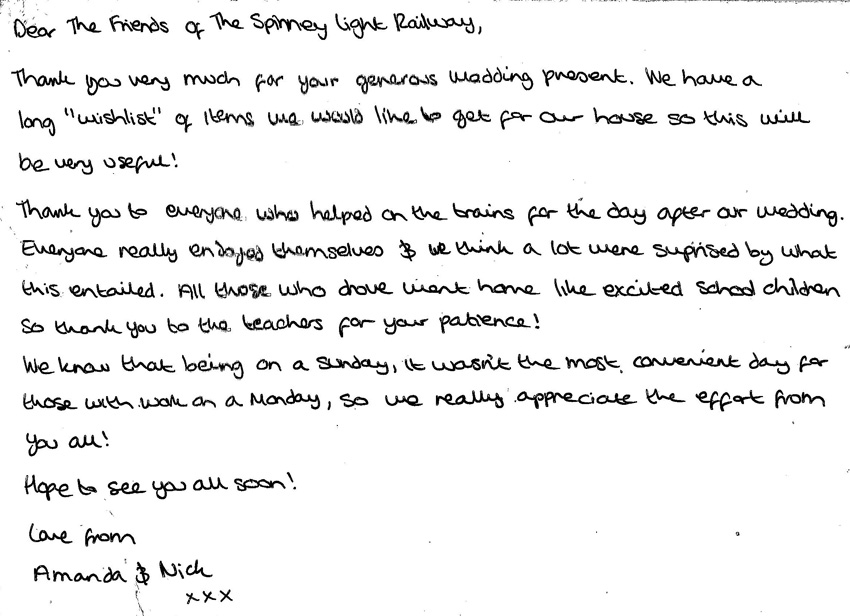 Dear The Friends of The Spinney Light Railway,
Thank you very much for your generous wedding present. We have a
long "wishlist" of items we would like to get for our house so this will
be very useful!
Thank you to everyone who helped on the trains for the day after our wedding.
Everyone really enjoyed themselves & we think a lot were suprised by what
this entailed. All those who drove went home like excited school children
so thank you to the teachers for your patience!
We know that being on a Sunday, it wasn't the most convenient day for
those with work on a Monday, so we really appreciate the effort from
you all!
Hope to see you all soon!
Love from
Amanda & Nick
xxx